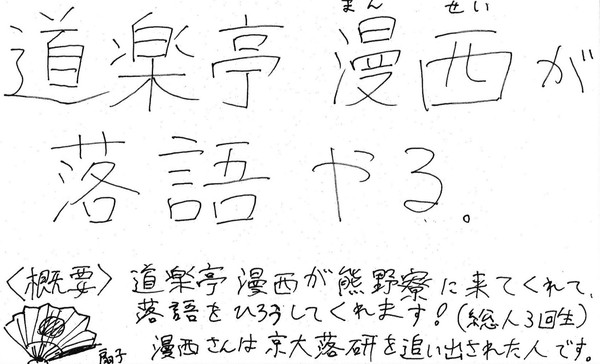 まん せい
道楽亭 漫西が
落語 やる。
〈概要〉 道楽亭 漫西が熊野寮に来てくれて、
落語をひろうしてくれます!(総人3回生)
扇子 漫西さんは京大落研を追い出された人です。